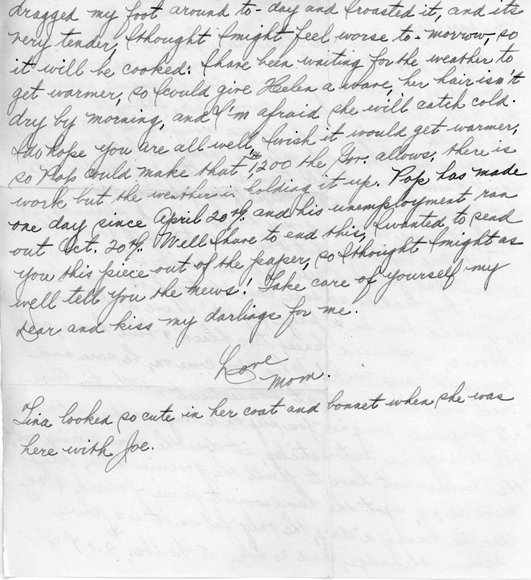 dragged my foot around to-day and I roasted it, and its
very tender, I thought I might feel worse to-morrow, so
it will be cooked: I have been waiting for the weather to
get warmer, so I could give Helen a wave, her hair isn't
dry by morning, and I'm afraid she will catch cold.
I do hope you are all well, I wish it would get warmer,
so Pops could make that $1,200 the Gov. allows, there is
work but the weather is holding it up. Pop has made
one day since April 20th. and his unemployment ran
out Oct. 20th. Well I have to end this, I wanted to send
you this piece out of the paper, so I thought I might as
well tell you the news! Take care of yourself my
dear and kiss my darlings for me.
Love
Mom.
Tina looked so cute in her coat and bonnet when she was
here with Joe.